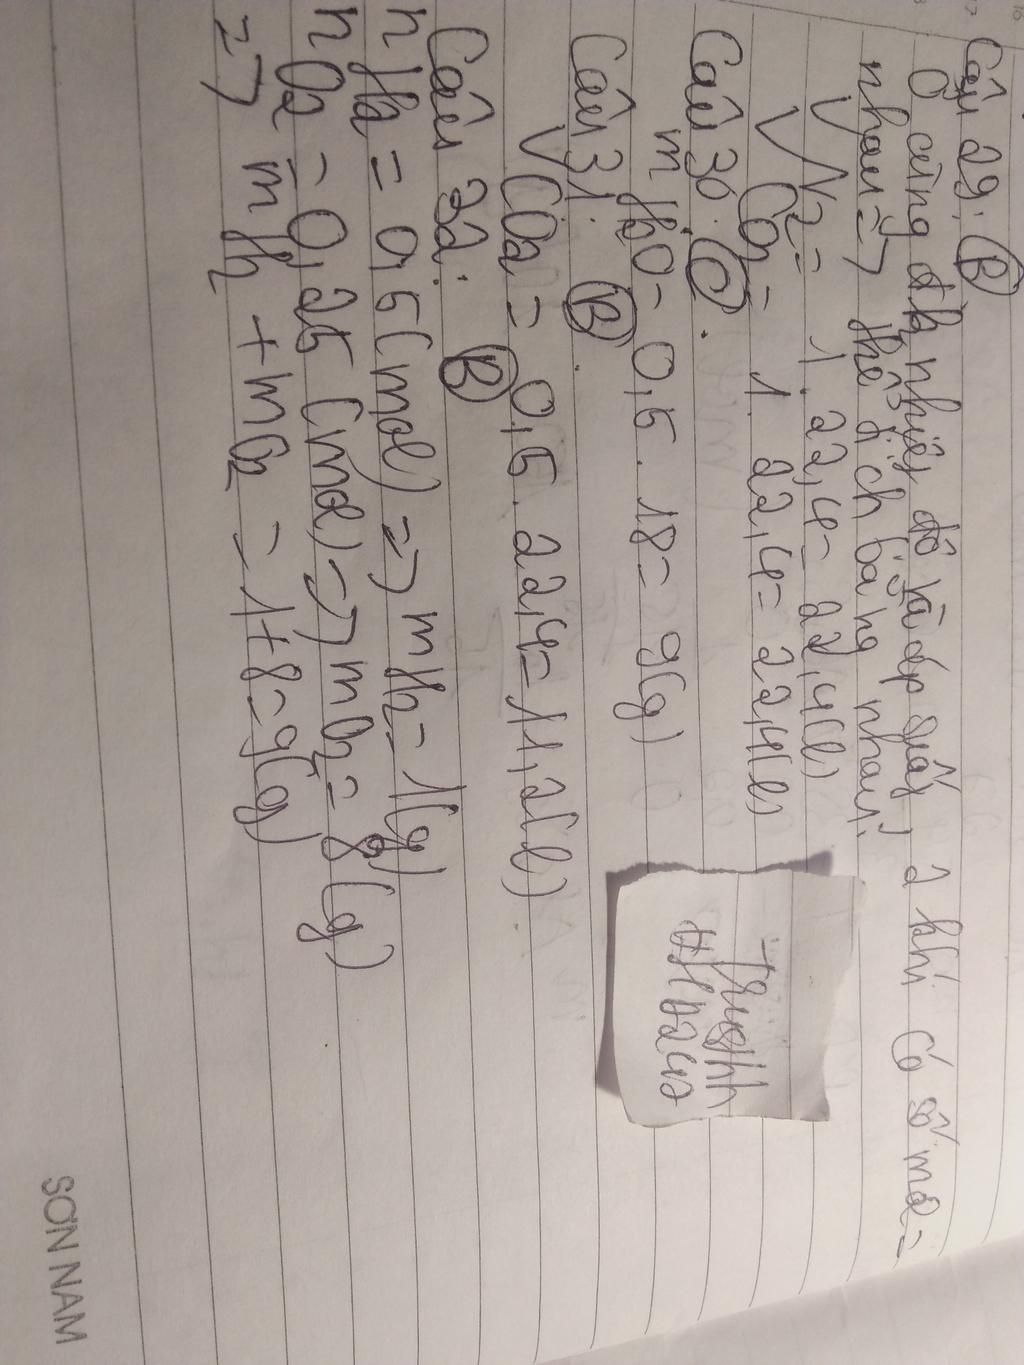 Câu 29. B
Ở cùng đk, nhiệt độ và áp suất, 2 khí có số mol =
nhau => thể tích bằng nhau.
V N2 = 1. 22,4 = 22,4(l)
V CO2 = 1. 22,4 = 22,4(l)
Câu 30. C.
m H2O = 0,5. 18 = 9(g)
Câu 31. B.
V CO2 = 0,5. 22,4 = 11,2(l)
Câu 32. B
n H2 = 0,5 (mol) => m H2 = 1(g)
n O2 = 0,25 (mol) => m O2 = 8 (g)
=> m H2 + m O2 = 1+8=9(g)
SƠN NAM